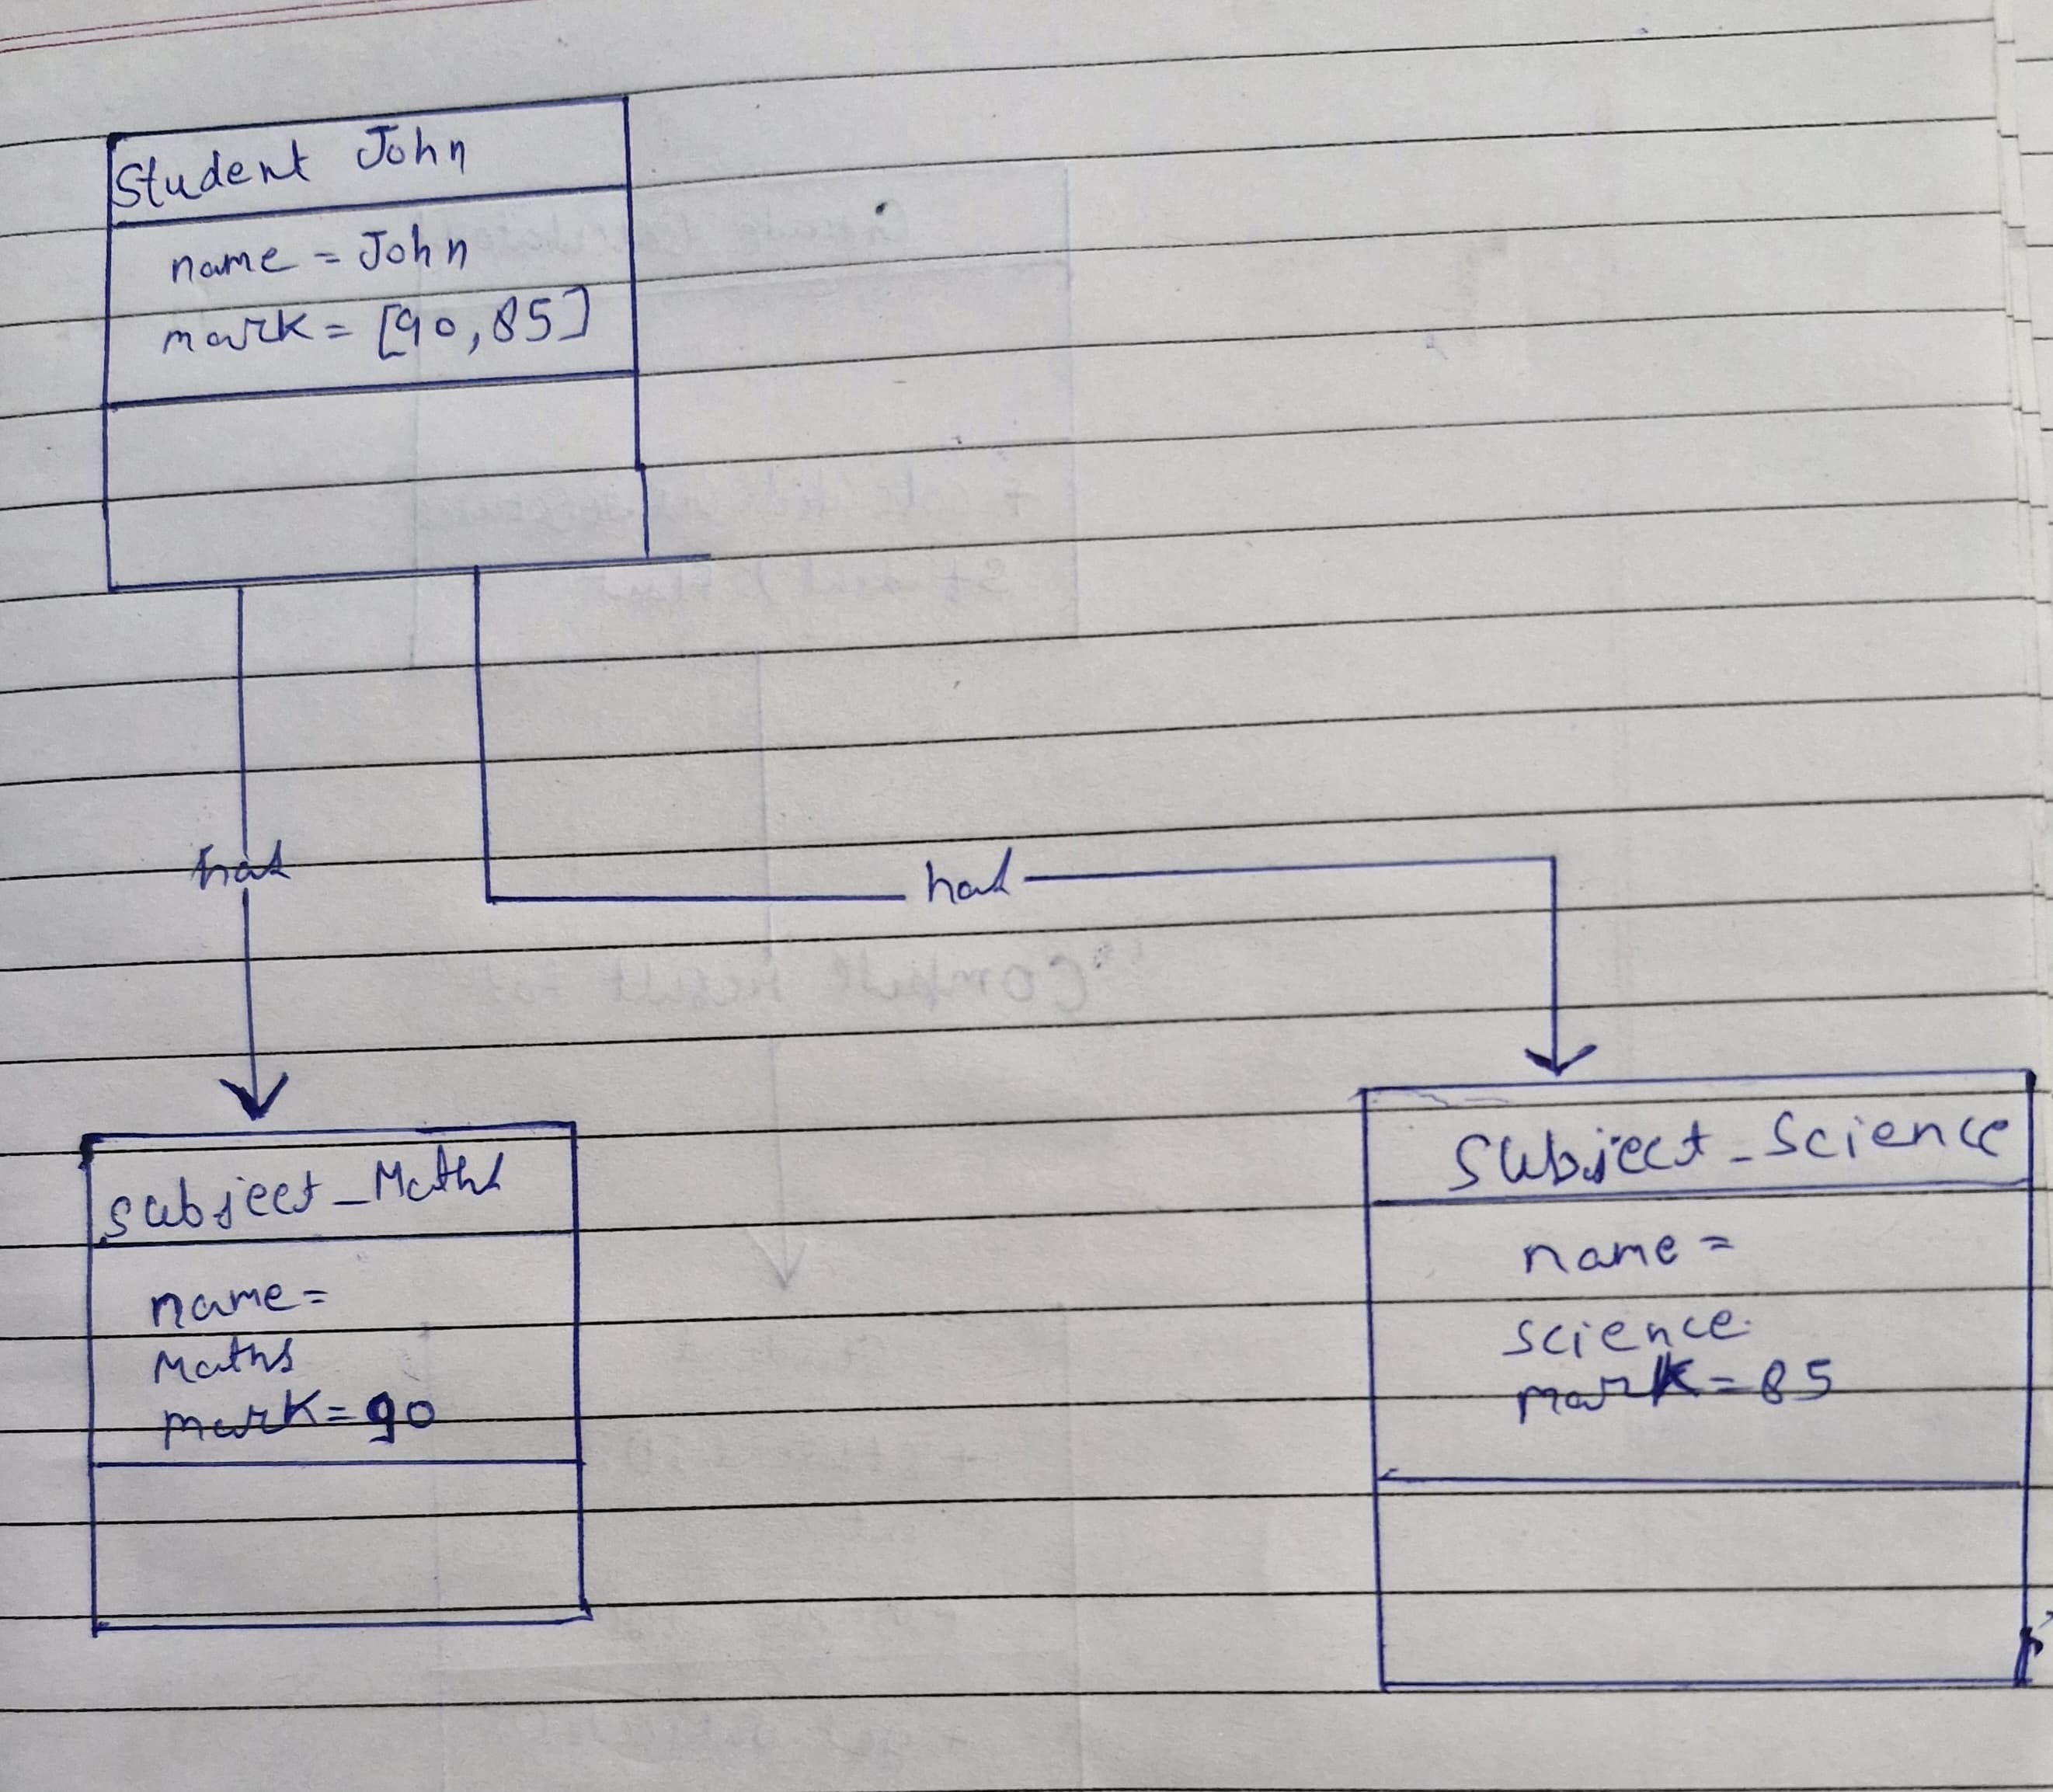 Student John
name = John
mark = [90, 85]
has
has
Subject_Maths
name =
Maths
mark = 90
Subject_Science
name =
science
mark = 85